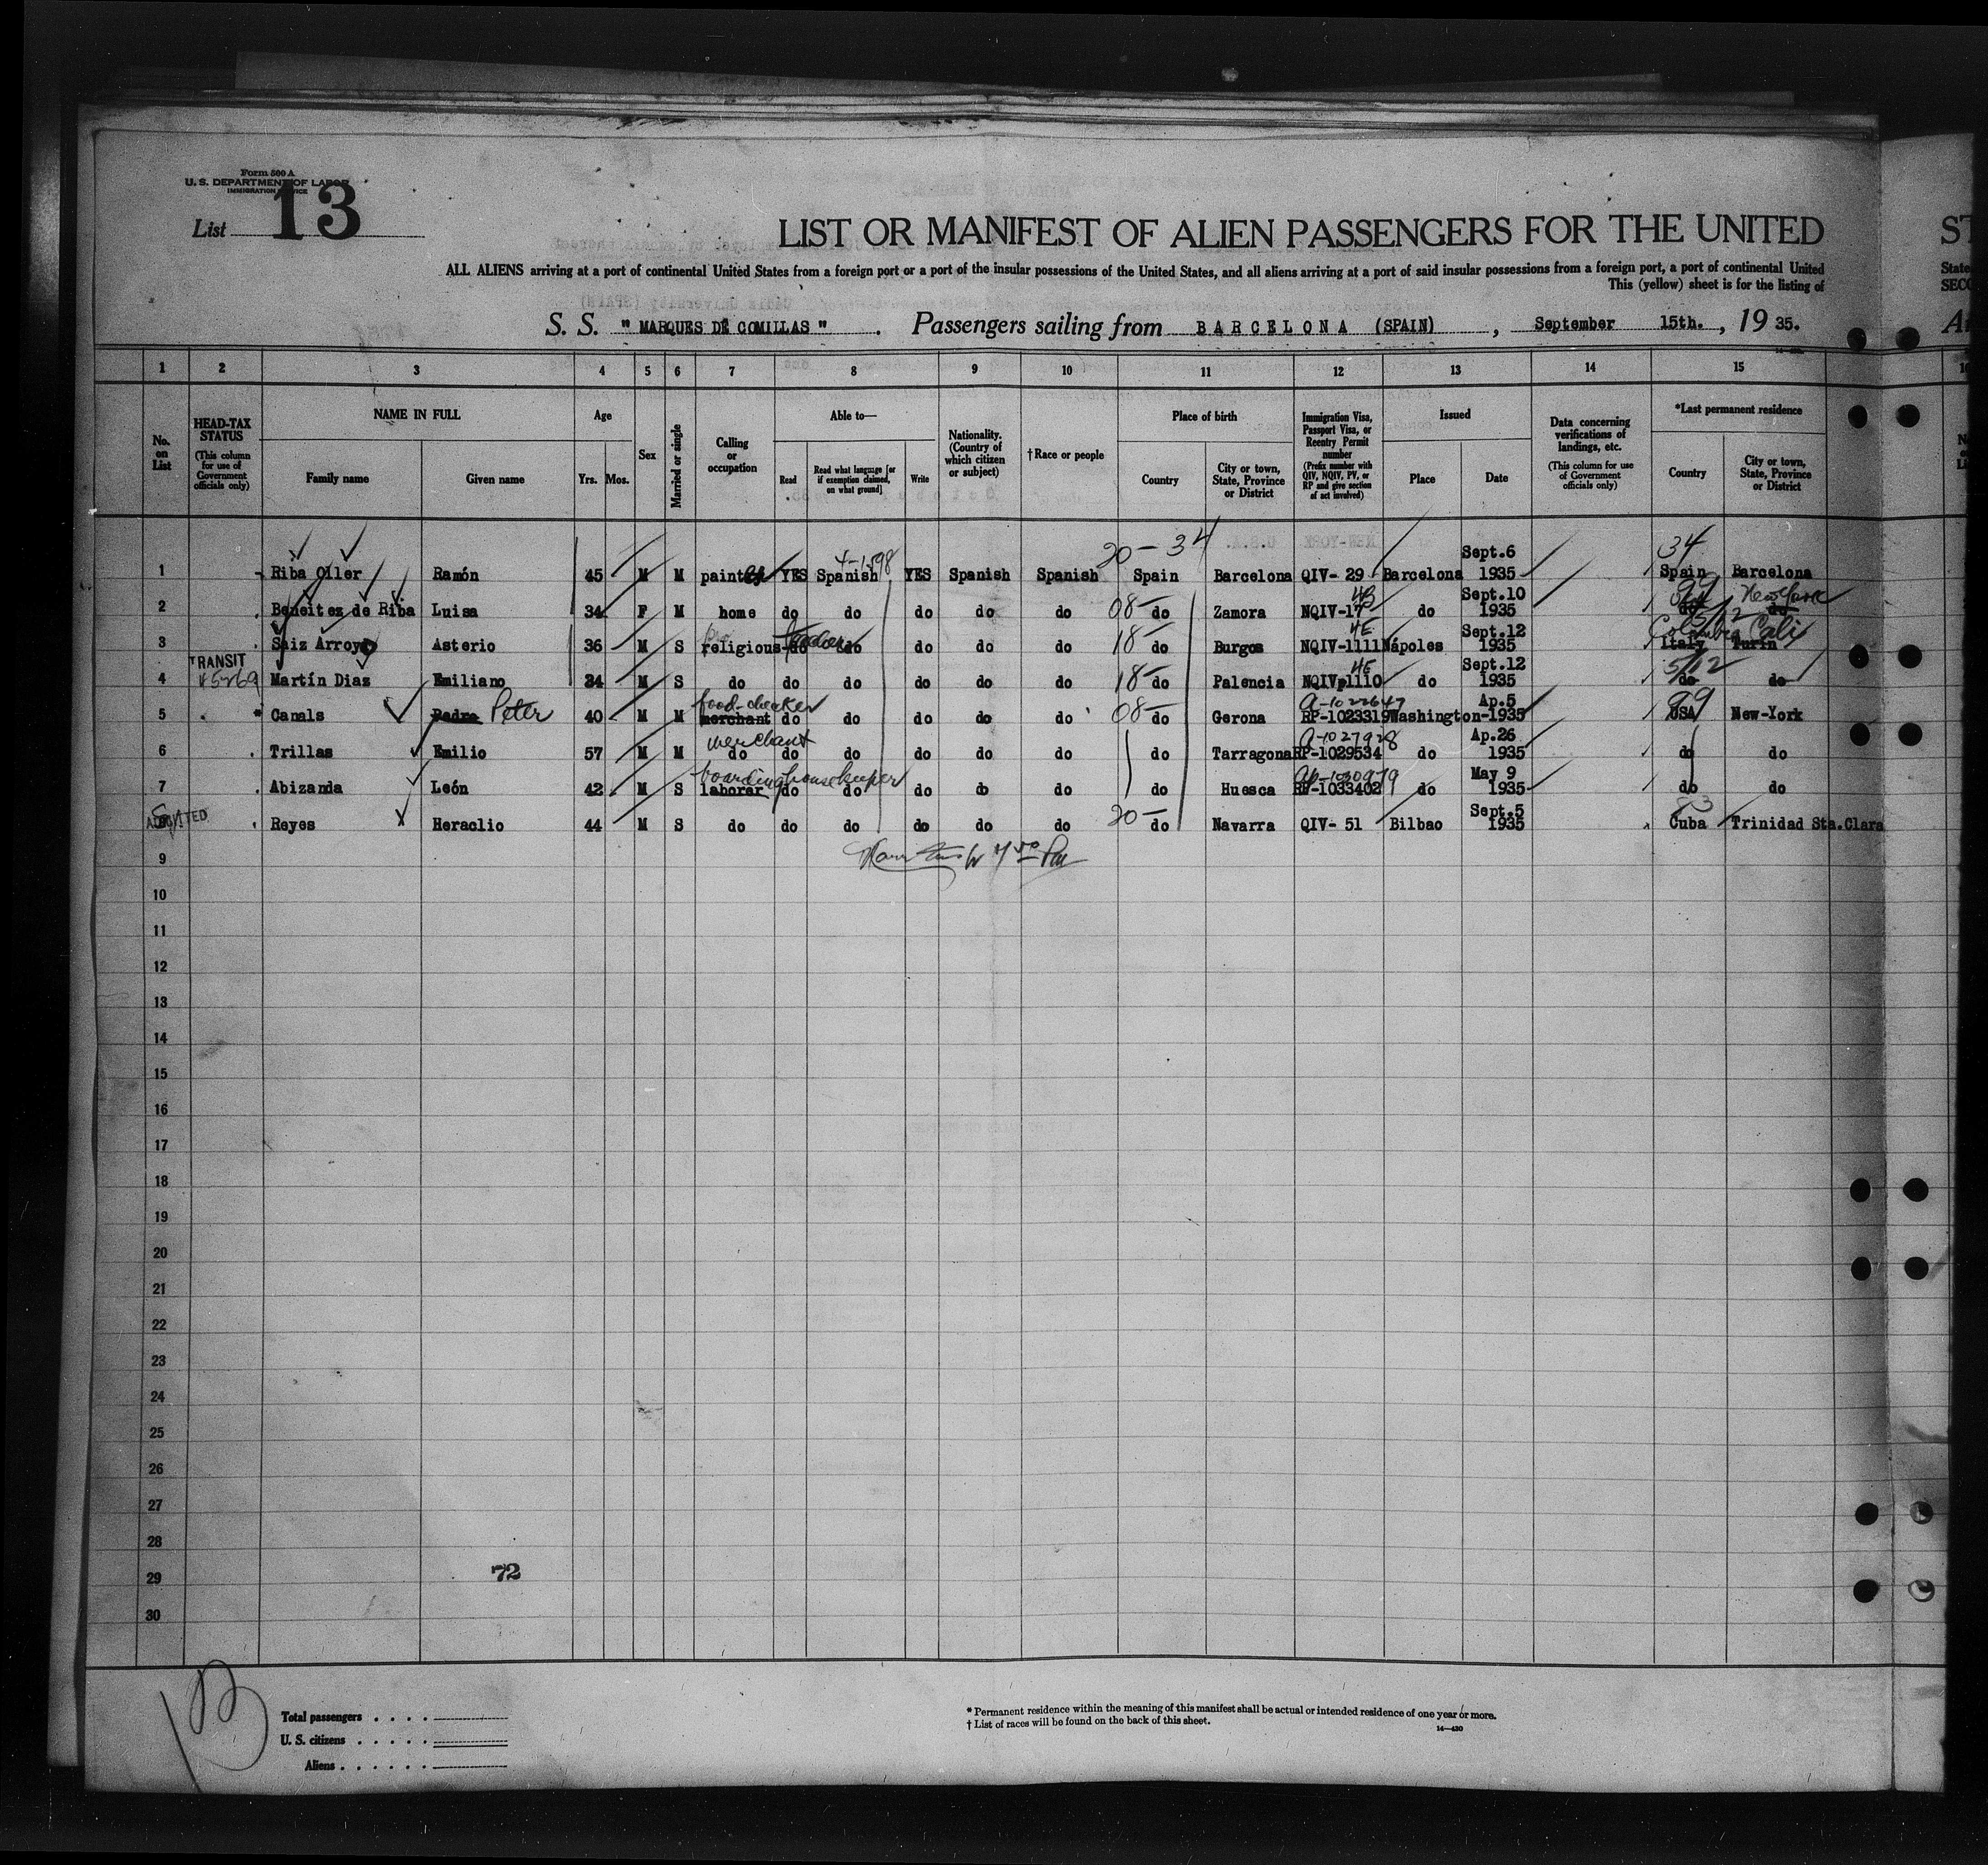 Form 500 A
U. S. DEPARTMENT OF LABOR
IMMIGRATION SERVICE
List 13
LIST OR MANIFEST OF ALIEN PASSENGERS FOR THE UNITED ST
ALL ALIENS arriving at a port of continental United States from a foreign port or a port of the insular possessions of the United States, and all aliens arriving at a port of said insular possessions from a foreign port, a port of continental United State
This (yellow) sheet is for the listing of SECO
S. S. " MARQUES DE COMILLAS " . Passengers sailing from BARCELONA (SPAIN) , September 15th. , 19 35.
1 2 3 4 5 6 7 8 9 10 11 12 13 14 15
No. on List
HEAD-TAX STATUS (This column for use of Government officials only)
NAME IN FULL
Family name Given name
Age
Yrs. Mos.
Sex
Married or single
Calling or occupation
Able to—
Read Read what language [or if exemption claimed, on what ground] Write
Nationality. (Country of which citizen or subject)
†Race or people
Place of birth
Country City or town, State, Province or District
Immigration Visa, Passport Visa, or Reentry Permit number (Prefix number with QIV, NQIV, PV, or RP and give section of act involved)
Issued
Place Date
Data concerning verifications of landings, etc. (This column for use of Government officials only)
*Last permanent residence
Country City or town, State, Province or District
4-1598 20-34 Sept.6 34
1 Riba Oller Ramón 45 M M painter YES Spanish YES Spanish Spanish Spain Barcelona QIV- 29 Barcelona 1935 Spain Barcelona
4B Sept.10 99 New York
2 Beneitez de Riba Luisa 34 F M home do do do do do 08- do Zamora NQIV-17 do 1935 do do
4E Sept.12 5/12 Colombia Cali
3 Saiz Arroyo Asterio 36 M S religious do do do do do 18- do Burgos NQIV-1111 Nápoles 1935 Italy Turin
TRANSIT 4E Sept.12 5/12
4 Martín Diaz Emiliano 34 M S do do do do do do 18- do Palencia NQIVp1110 do 1935 do do
food-checker A-1022647 Ap.5 99
5 Canals Pedro Peter 40 M M merchant do do do do do 08- do Gerona RP-1023319 Washington-1935 USA New-York
merchant A-1027928 Ap.26
6 Trillas Emilio 57 M M do do do do do do do Tarragona RP-1029534 do 1935 do do
boardinghouse keeper May 9
7 Abizanda León 42 M S laborer do do do do do do Huesca RP-1033402 do 1935 do do
ADMITTED Sept.5
8 Reyes Heraclio 44 M S do do do do do do 20- do Navarra QIV- 51 Bilbao 1935 Cuba Trinidad Sta.Clara
9
10
11
12
13
14
15
16
17
18
19
20
21
22
23
24
25
26
27
28
29 72
30
13
Total passengers
U. S. citizens
Aliens
* Permanent residence within the meaning of this manifest shall be actual or intended residence of one year or more.
† List of races will be found on the back of this sheet.
14—430